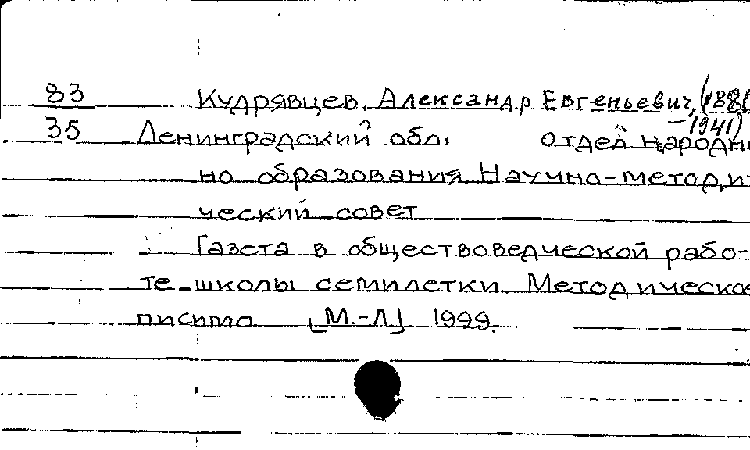 83 Кудрявцев, Александр Евгеньевич, (1881
35 Ленинградский обл. отдел народн -1941)
но образования Научно-методи
ческий совет
Газета в обществоведческой рабо-
те школы семилетки. Методическое
письмо [М.-Л] 1999.